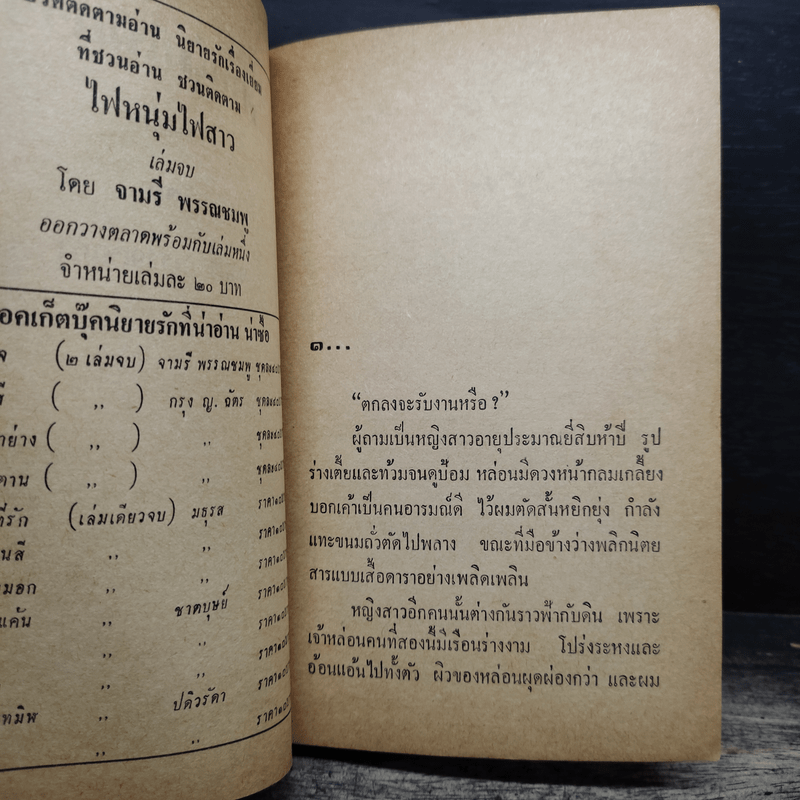 ติดตามอ่าน นิยายรักเรื่องเยี่ยม
ที่ชวนอ่าน ชวนติดตาม
ไฟหนุ่มไฟสาว
เล่มจบ
โดย จามรี พรรณชมพู
ออกวางตลาดพร้อมกับเล่มหนึ่ง
จำหน่ายเล่มละ ๒๐ บาท
อคเก็ตบุ๊คนิยายรักที่น่าอ่าน น่าซื้อ
(๒ เล่มจบ) จามรี พรรณชมพู
( ,, ) กรุง ญ. ฉัตร
( ,, ) ,,
ตาน ( ,, )
ที่รัก (เล่มเดียวจบ) มธุรส
นสี ,, ,,
มอก ,, ชาตบุษย์
แค้น ,, ,,
,, ,,
,, ปดิวรัดา
ทมิพ ,, ,,
,, ,,
๑...
“ตกลงจะรับงานหรือ ?”
ผู้ถามเป็นหญิงสาวอายุประมาณยี่สิบห้าปี รูป
ร่างเตี้ยและท้วมจนดูป้อม หล่อนมีดวงหน้ากลมเกลี้ยง
บอกเค้าเป็นคนอารมณ์ดี ไว้ผมดัดสั้นหยิกยุ่ง กำลัง
แทะขนมถั่วตัดไปพลาง ขณะที่มือข้างว่างพลิกนิตย
สารแบบเสื้อดาราอย่างเพลิดเพลิน
หญิงสาวอีกคนนั้นต่างกันราวฟ้ากับดิน เพราะ
เจ้าหล่อนคนที่สองนี้มีเรือนร่างงาม โปร่งระหงและ
อ้อนแอ้นไปทั้งตัว ผิวของหล่อนผุดผ่องกว่า และผม